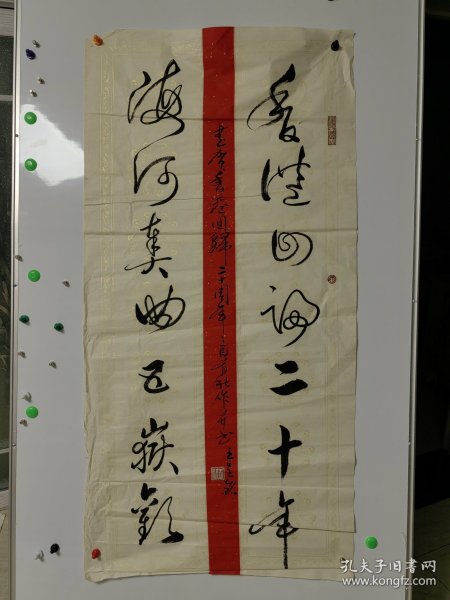 香港回归二十年
海河奏曲五嶽歡
書賀香港回歸二十周年
孔夫子旧书网
www.kongfz.com